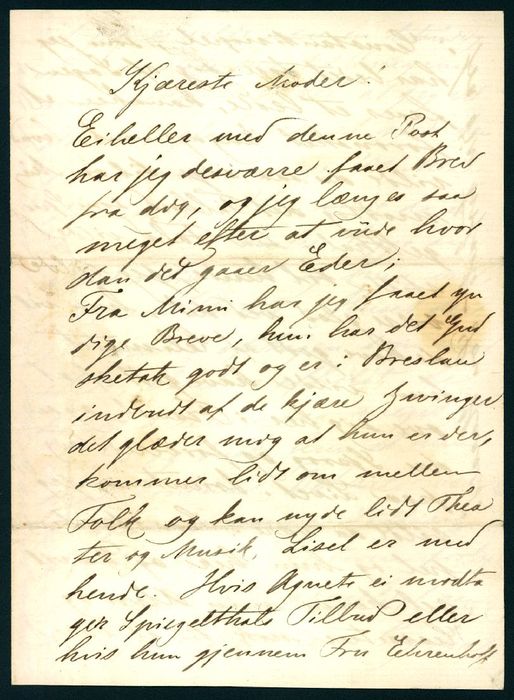 Kjæreste Moder!
Ei heller med denne Post
har jeg desværre faaet Brev
fra dig, og jeg længes saa
meget efter at vide hvor
dan det gaaer Eder;
Fra Mimi har jeg faaet yn
dige Breve, hun har det Gud
ske tak godt og er i Breslau
indbudt af de kjære Zwinger
det glæder mig at hun er der,
kommer lidt om mellem
Folk og kan nyde lidt Thea
ter og Musik, Lisel er med
hende. Hvis Agnete ei modta
ger Spiegelthals Tilbud eller
hvis hun gjennem Fru Ehrenhoff